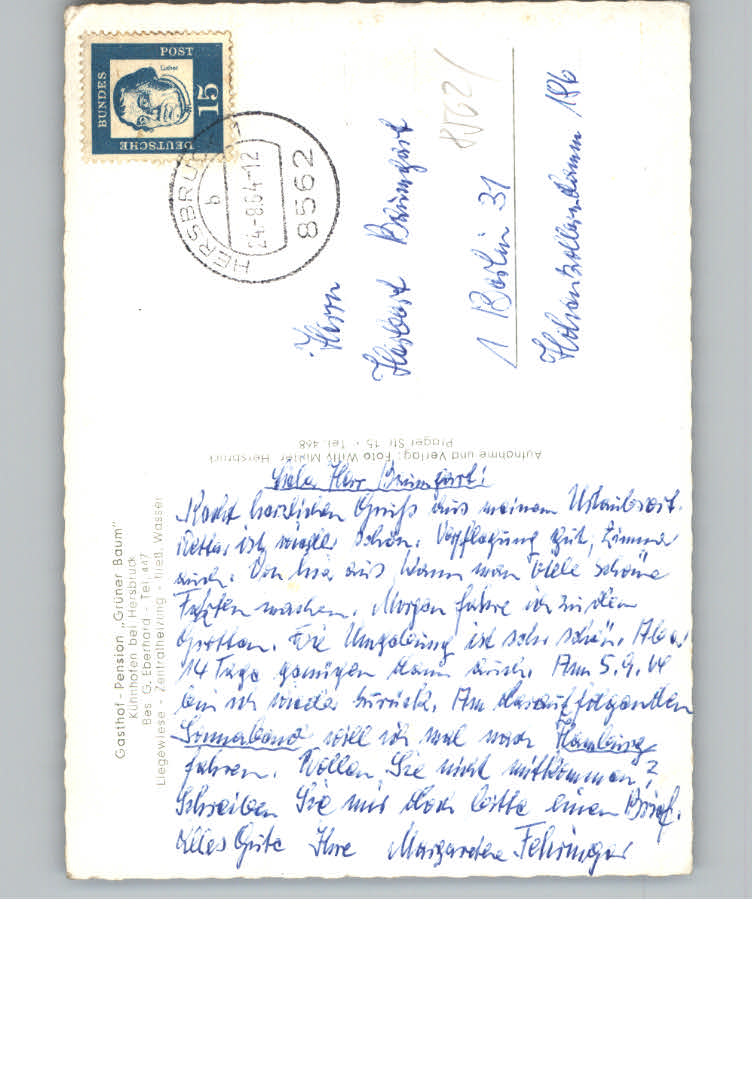 DEUTSCHE
BUNDES
POST
15
Luther
HERSBRUCK
b
24.-8.64-12
8562
8562/
Herrn
Herbert Baumgart
1 Berlin 31
Hohenzollerndamm 196
Gasthof-Pension „Grüner Baum"
Kühnhofen bei Hersbruck
Bes. G. Eberhard - Tel. 447
Liegewiese - Zentralheizung - fließ. Wasser
Aufnahme und Verlag: Foto Willy Mixler, Hersbruck
Prager Str. 15 · Tel. 468
Lieber Herr Baumgart!
Recht herzlichen Gruß aus meinem Urlaubsort.
Wetter ist wieder schön. Verpflegung gut, Zimmer
auch. Von hier aus kann man viele schöne
Fahrten machen. Morgen fahre ich zu den
Grotten. Die Umgebung ist sehr schön. Aber
14 Tage genügen dann auch. Am 5.9.64
bin ich wieder zurück. Am darauffolgenden
Sonnabend will ich mal nach Hamburg
fahren. Wollen Sie nicht mitkommen?
Schreiben Sie mir doch bitte einen Brief.
Alles Gute Ihre Margarethe Fehringer